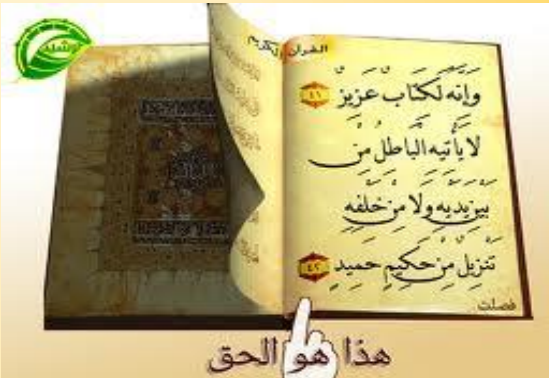 القرآن الكريم
وَإِنَّهُ لَكِتَابٌ عَزِيزٌ ٤١
لَا يَأْتِيهِ الْبَاطِلُ مِنْ
بَيْنِ يَدَيْهِ وَلَا مِنْ خَلْفِهِ
تَنزِيلٌ مِنْ حَكِيمٍ حَمِيدٍ ٤٢
فصلت
هذا هو الحق